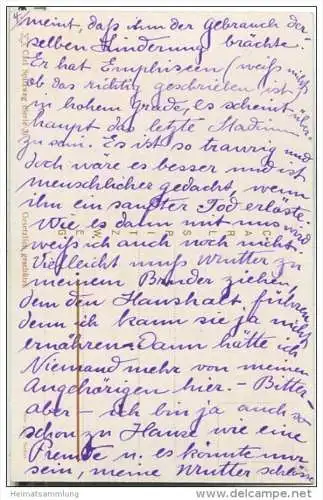 4/ meint, daß ihm der Gebrauch der-
selben Linderung brächte.
Er hat Emphiseen (weiß nicht,
ob das richtig geschrieben ist)
zu hohem Grade, es scheint über-
haupt das letzte Stadium
zu sein. Es ist so traurig und
doch wäre es besser und ist
menschlicher gedacht, wenn
ihn ein sanfter Tod erlöste.
Wie es dann mit uns wird
weiß ich auch noch nicht.
Vielleicht muß Mutter zu
meinem Bruder ziehen,
dem den Haushalt führen,
denn ich kann sie ja nicht
ernähren. Dann hätte ich
Niemand mehr von meinen
Angehörigen hier. - Bitter
aber - ich bin ja auch so
schon zu Hause wie eine
Fremde u. es könnte nur
sein, meine Mutter schlösse
Carl Spitzweg Serie
Gesetzlich geschützt
heimatsammlung.de